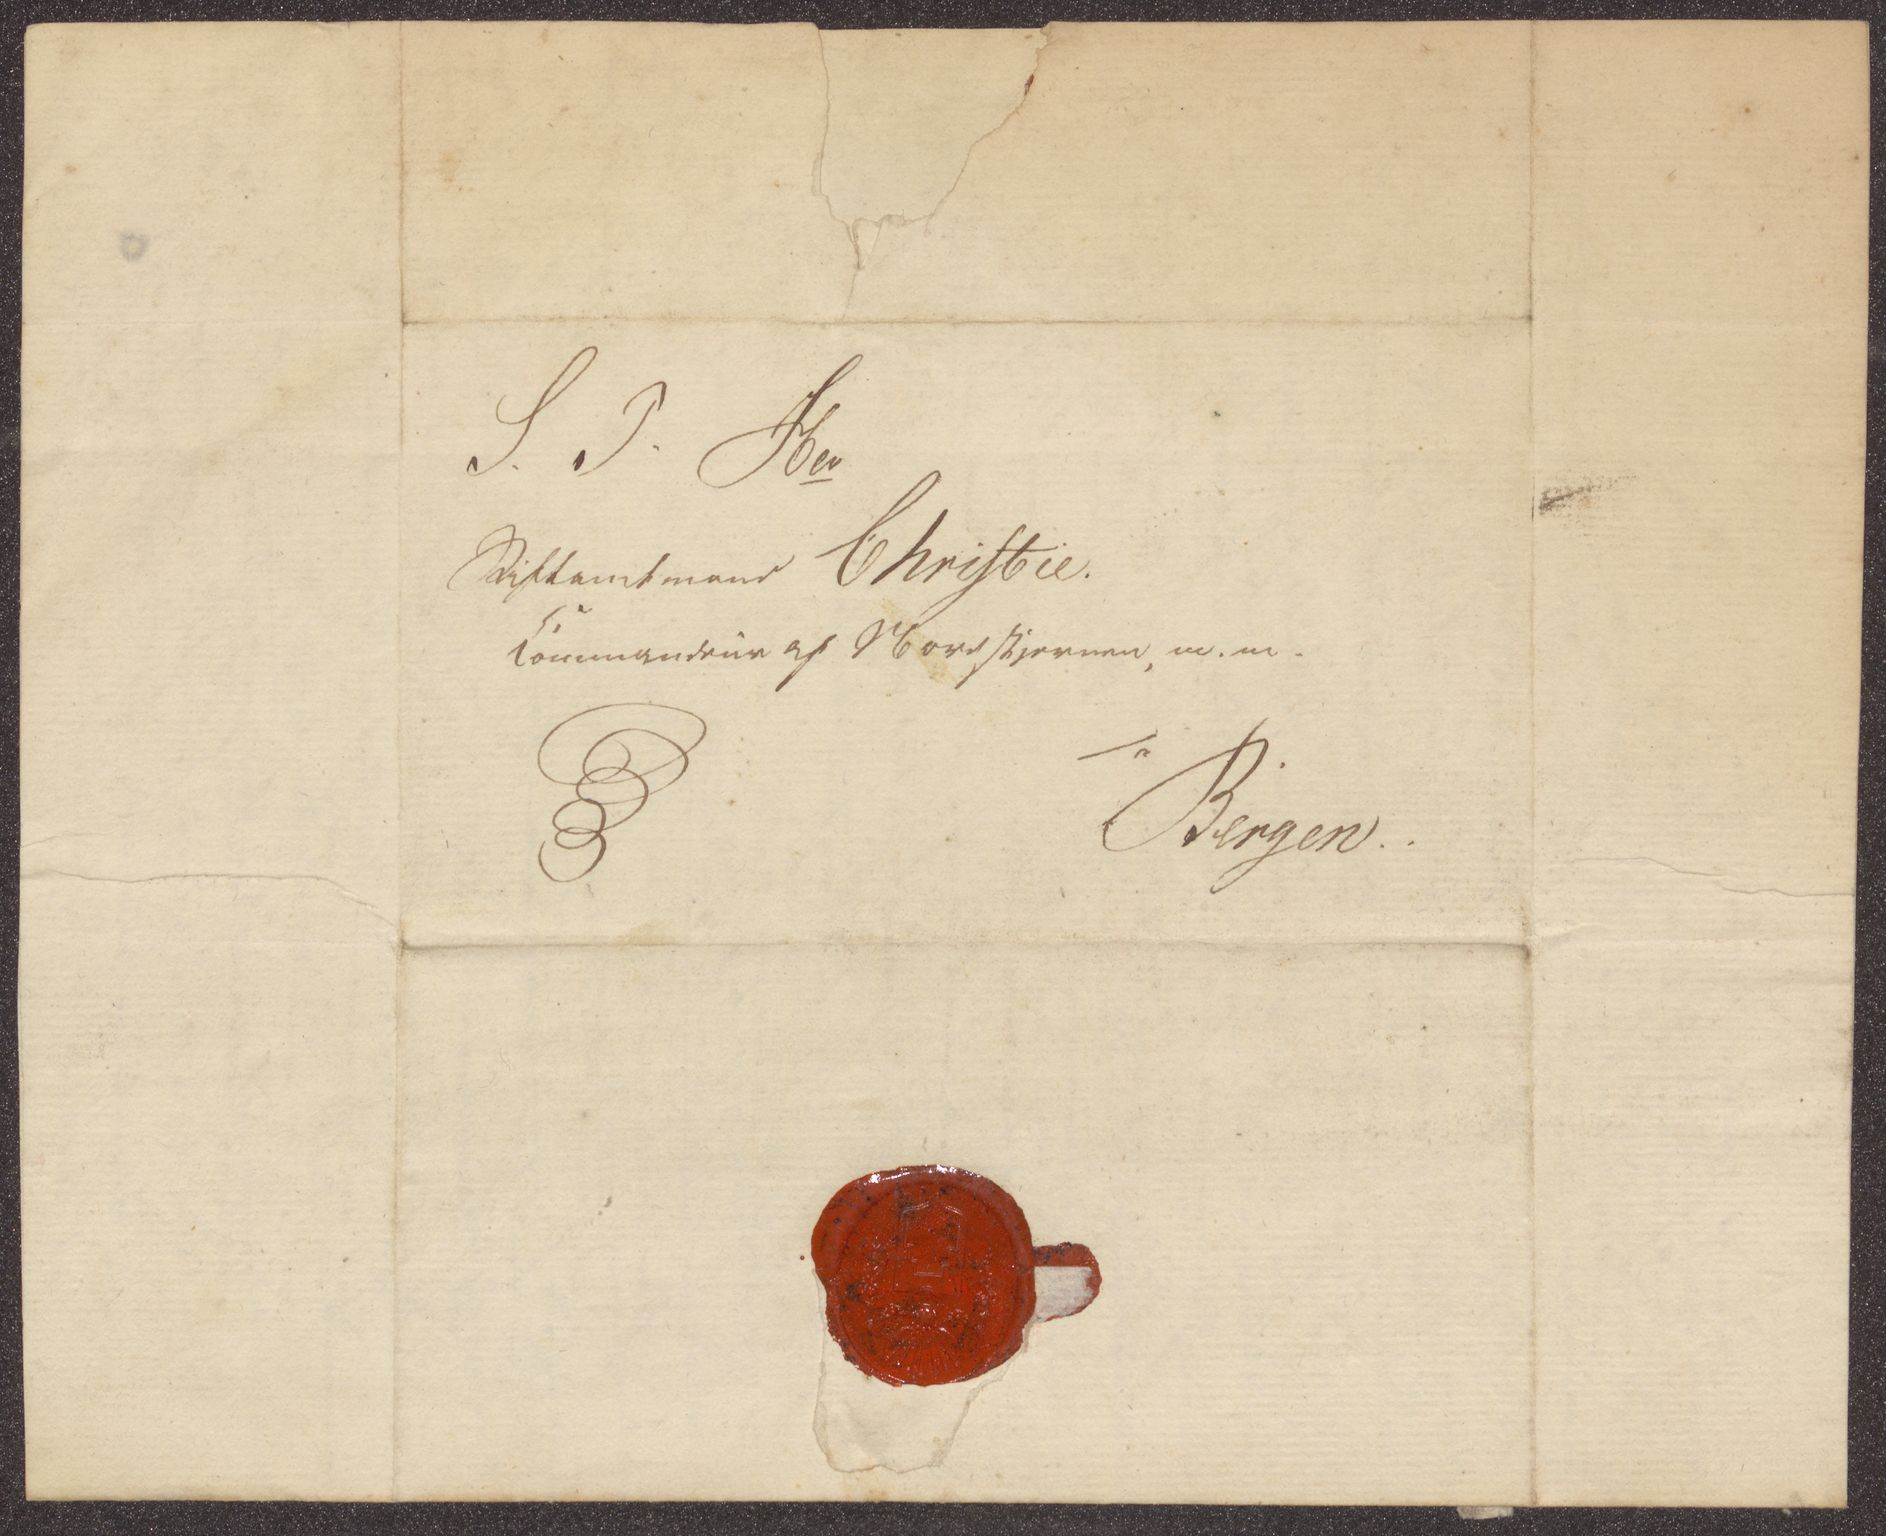 S. T. Herr
Stiftamtmand Christie.
Commandeur af Nordstjernen, m. m.
Bergen.